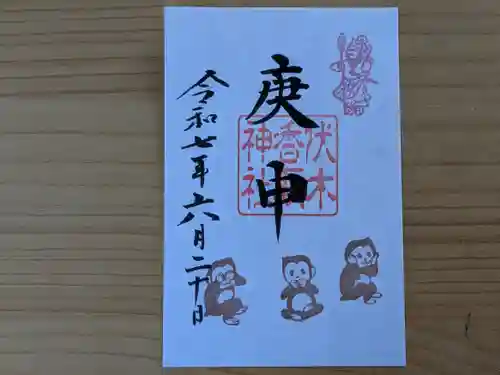 庚申
伏木
香取
神社
令和七年六月二十日